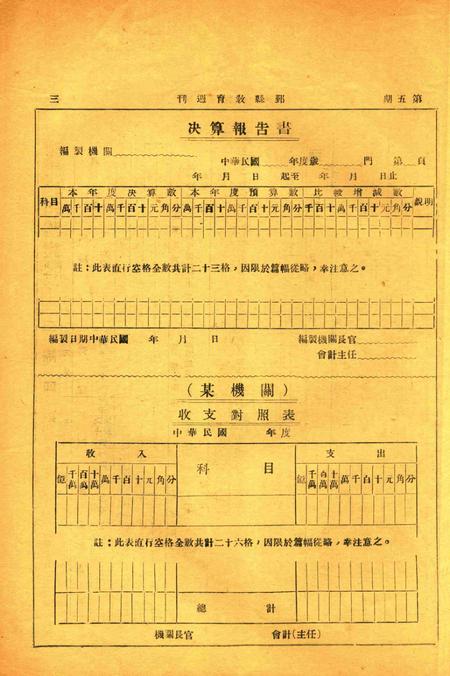 第五期　鄞縣教育週刊　三
決算報告書
編製機關
中華民國　年度歲　門　第　頁
年　月　日　起至　年　月　日止
科目　本年度決算數　本年度預算數　比較增減數　說明
萬千百十萬千百十元角分　萬千百十萬千百十元角分　千百十萬千百十元角分
註：此表直行空格全數共計二十三格，因限於篇幅從略，幸注意之。
編製日期中華民國　年　月　日　編製機關長官
會計主任
（某機關）
收支對照表
中華民國　年度
收入　科目　支出
億千萬百萬十萬萬千百十元角分　億千萬百萬十萬萬千百十元角分
註：此表直行空格全數共計二十六格，因限於篇幅從略，幸注意之。
總計
機關長官　會計（主任）